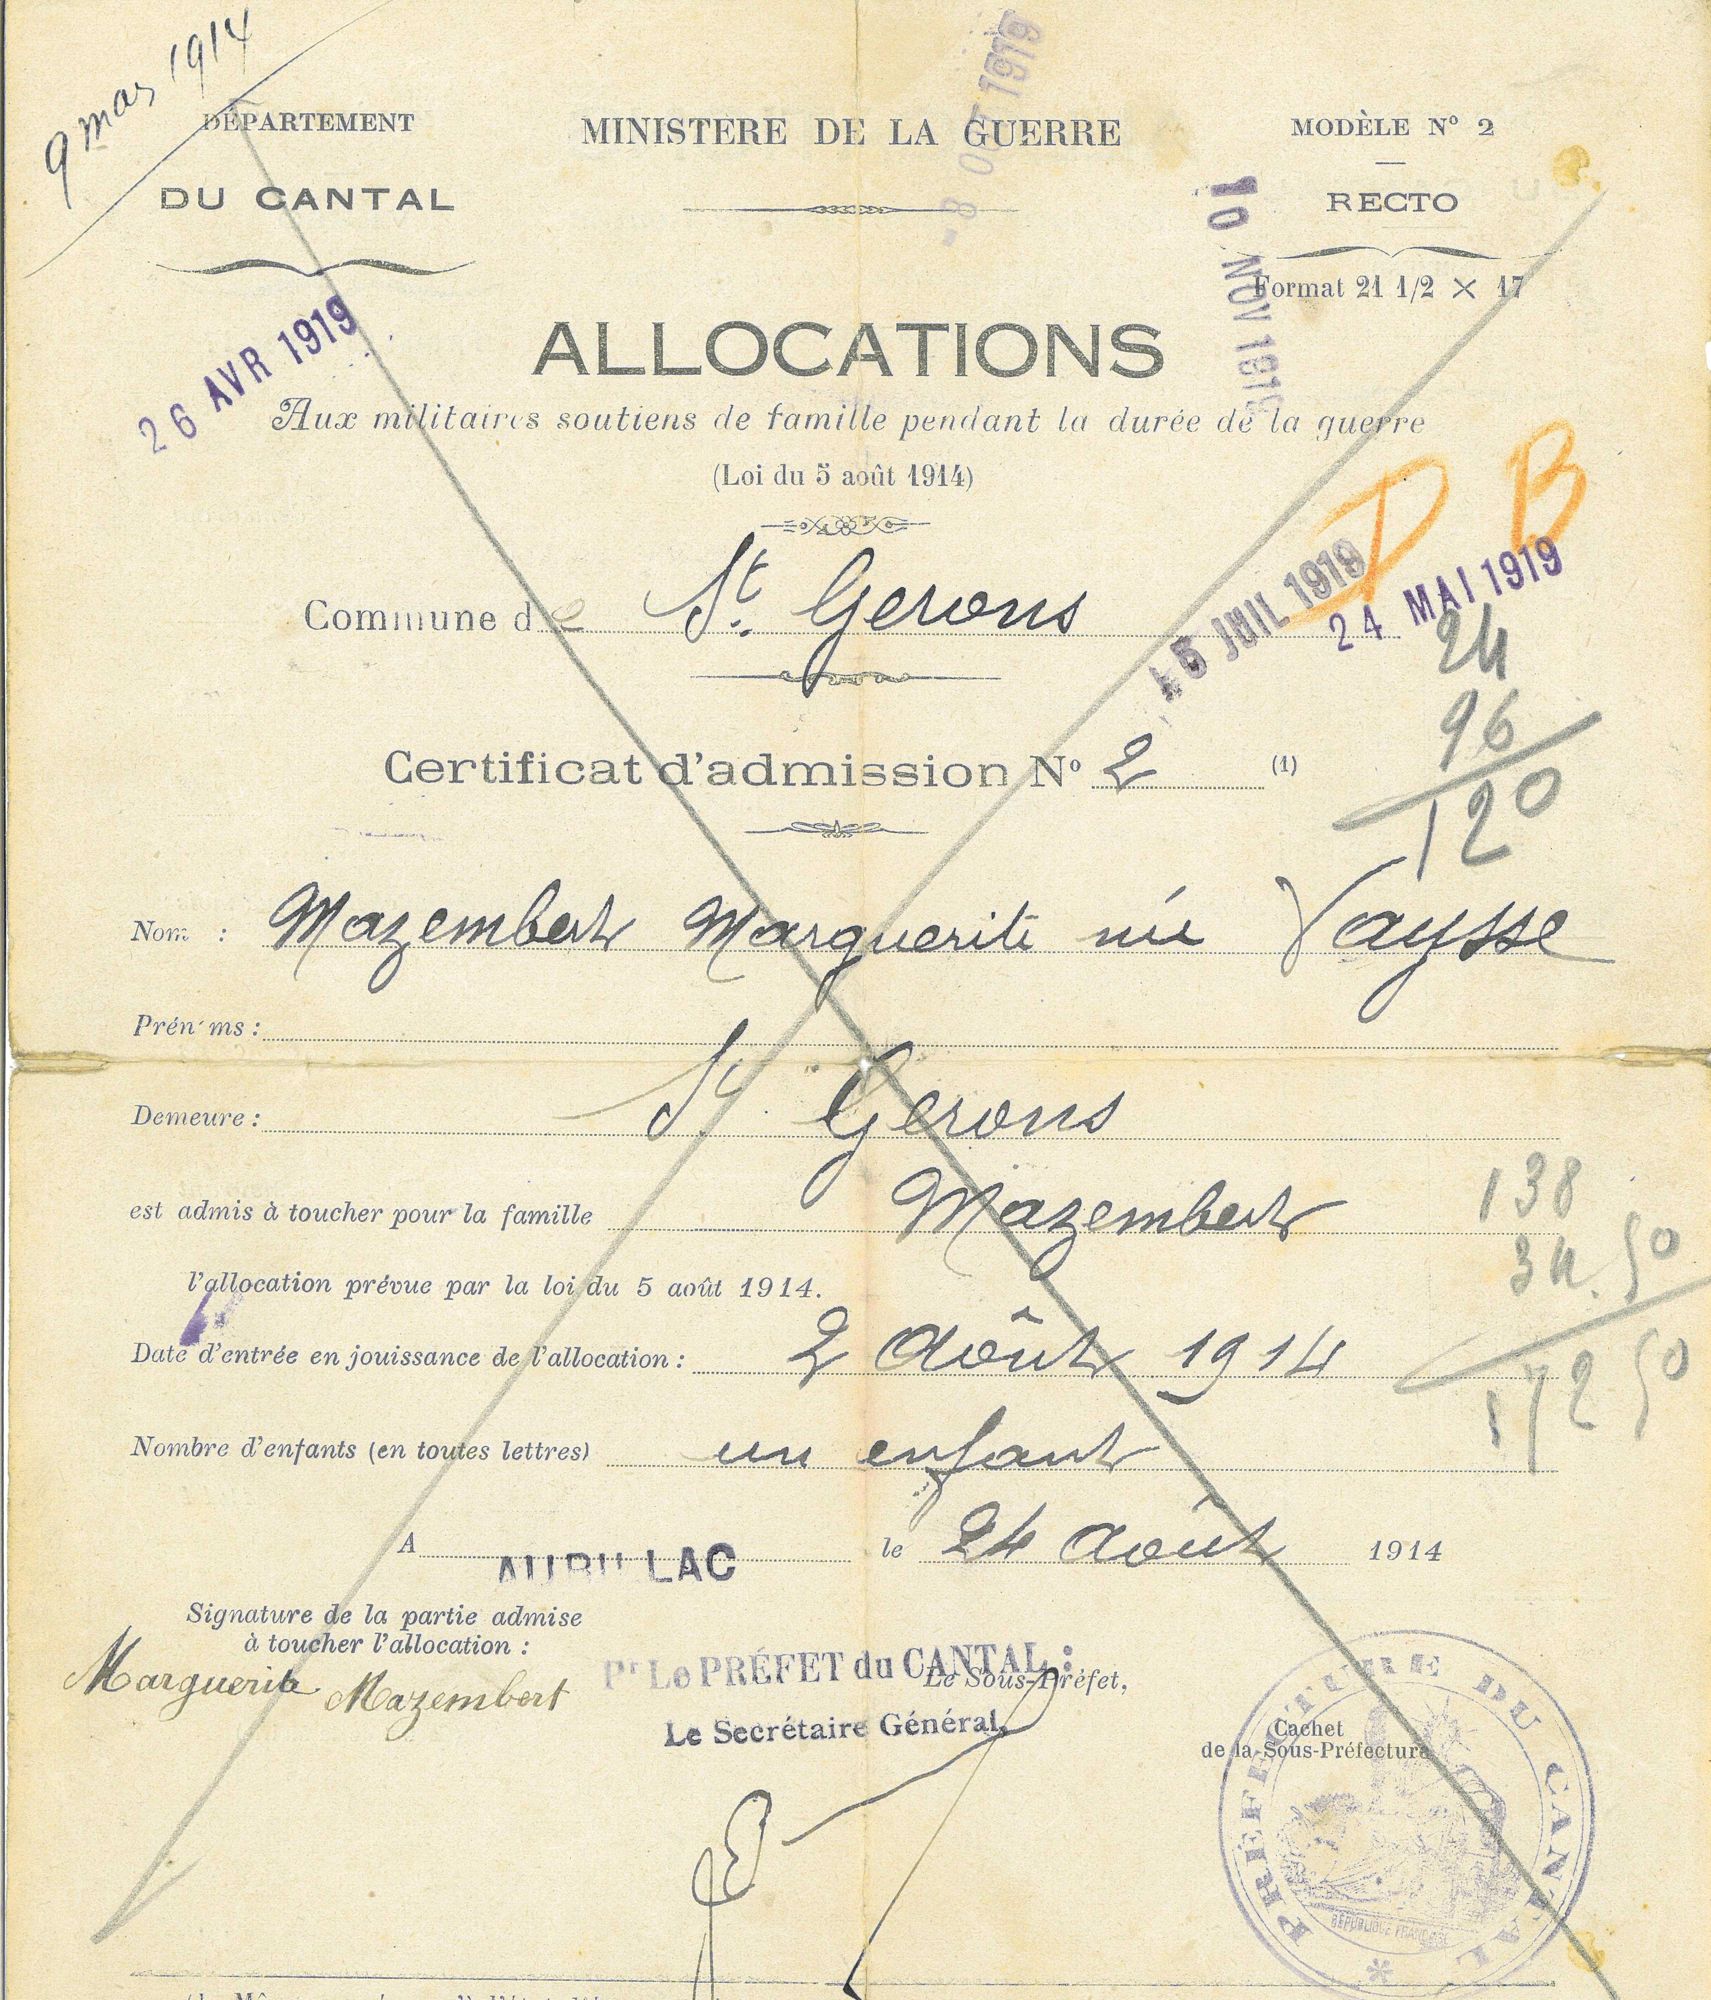 9 mars 1914
DÉPARTEMENT
DU CANTAL
MINISTÈRE DE LA GUERRE
MODÈLE Nº 2
RECTO
Format 21 1/2 × 17
8 OCT 1919
10 NOV 1919
26 AVR 1919
ALLOCATIONS
Aux militaires soutiens de famille pendant la durée de la guerre
(Loi du 5 août 1914)
D B
Commune de St. Gerons
15 JUIL 1919
24 MAI 1919
24
96
120
Certificat d'admission Nº 2 (1)
Nom : Mazembert Marguerite née Vaysse
Prén ms :
Demeure : St Gerons
est admis à toucher pour la famille Mazembert
138
34.50
172 50
l'allocation prévue par la loi du 5 août 1914.
Date d'entrée en jouissance de l'allocation : 2 Août 1914
Nombre d'enfants (en toutes lettres) un enfant
A AURILLAC le 24 Août 1914
Signature de la partie admise
à toucher l'allocation :
Marguerite Mazembert
Pr Le PRÉFET du CANTAL :
Le Sous-Préfet,
Le Secrétaire Général,
Cachet
de la Sous-Préfecture
PRÉFECTURE DU CANTAL
RÉPUBLIQUE FRANÇAISE